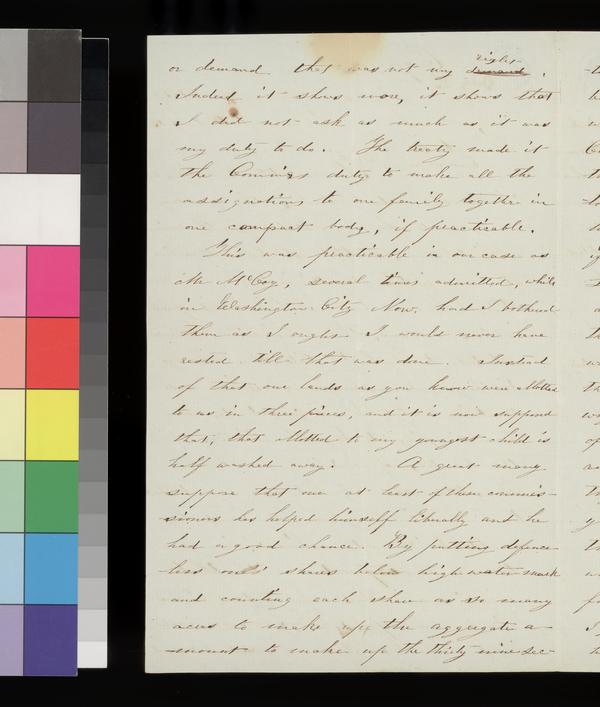 right
or demand that was not my demand.
Indeed it shows more, it shows that
I did not ask as much as it was
my duty to do. The treaty made it
the Commirs duty to make all the
assignations to one family together in
one compact body, if practicable.
This was practicable in our case as
Mr McCoy, several times admitted, while
in Washington City Now, had I bothered
them as I ought I would never have
rested till that was done. Instead
of that our lands as you know were allotted
to us in three pieces, and it is now supposed
that, that allotted to my youngest child is
half washed away. A great many
suppose that one at least of these commis-
sioners has helped himself liberally and he
had a good chance. By putting defence-
less ones' shares below high water mark
and counting each share as so many
acres to make up the aggregate a-
mount to make up the thirty nine sec-